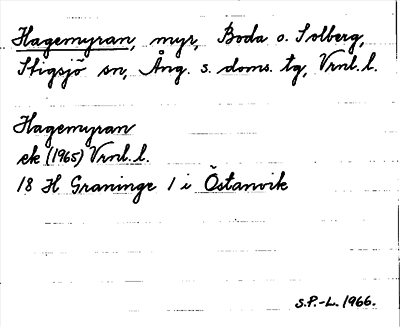 Hagemyran, myr, Boda o. Solberg,
Stigsjö sn, Ång. s. doms. tg, Vrnl. l.
Hagemyran
ek (1965) Vrnl. l.
18 H Graninge 1 i Östanvik
S.P.-L. 1966.